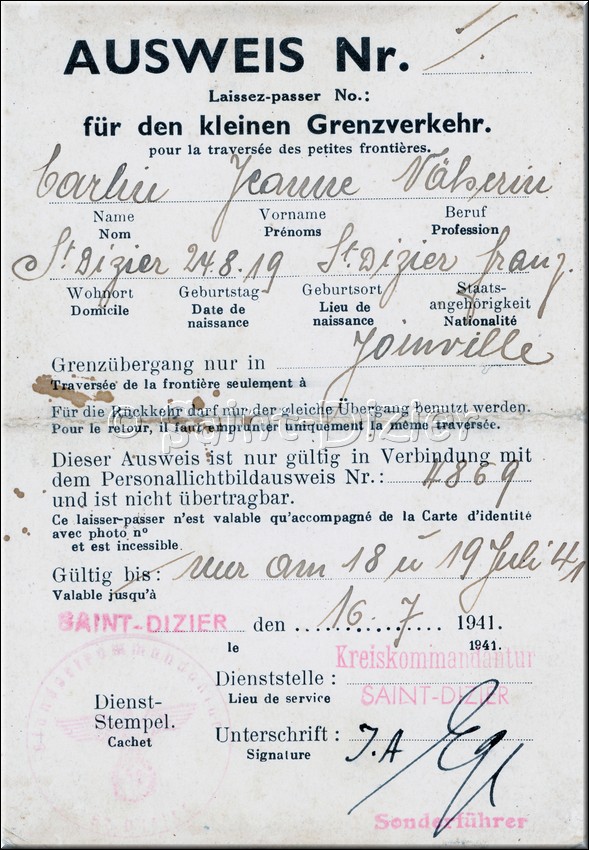 AUSWEIS Nr.
Laissez-passer No.:
für den kleinen Grenzverkehr.
pour la traversée des petites frontières.
Carlin Jeanne Näherin
Name Vorname Beruf
Nom Prénoms Profession
St Dizier 24.8.19 St Dizier franz.
Wohnort Geburtstag Geburtsort Staats-
Domicile Date de Lieu de angehörigkeit
naissance naissance Nationalité
Grenzübergang nur in Joinville
Traversée de la frontière seulement à
Für die Rückkehr darf nur der gleiche Übergang benutzt werden.
Pour le retour, il faut emprunter uniquement la même traversée.
© Saint-Dizier
Dieser Ausweis ist nur gültig in Verbindung mit
dem Personallichtbildausweis Nr.: 4869
und ist nicht übertragbar.
Ce laisser-passer n'est valable qu'accompagné de la Carte d'identité
avec photo nº
et est incessible.
Gültig bis: nur am 18 u 19 Juli 41
Valable jusqu'à
SAINT-DIZIER den 16.7. 1941.
le 1941.
Kreiskommandantur
Dienststelle:
Lieu de service SAINT-DIZIER
Dienst-
Stempel.
Cachet
Unterschrift: I.A
Signature
Sonderführer